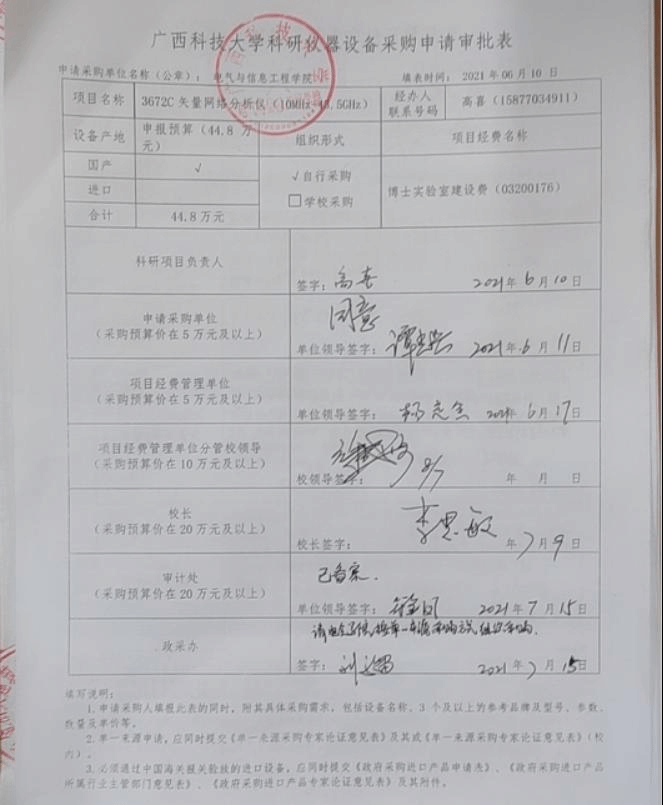 广西科技大学科研仪器设备采购申请审批表
申请采购单位名称（公章）： 电气与信息工程学院 填表时间： 2021 年 06 月 10 日
项目名称 3672C 矢量网络分析仪（10MHz-43.5GHz） 经办人联系号码 高喜（15877034911）
设备产地 申报预算（44.8 万元） 组织形式 项目经费名称
国产 √
√自行采购
进口 博士实验室建设费（03200176）
□学校采购
合计 44.8 万元
科研项目负责人
签字：高喜 2021年 6 月 10 日
同意
申请采购单位
（采购预算价在 5 万元及以上）
单位领导签字： 2021年 6 月 11 日
项目经费管理单位
（采购预算价在 5 万元及以上）
单位领导签字： 2021年 6 月 17 日
项目经费管理单位分管校领导
（采购预算价在 10 万元及以上）
校领导签字： 8/7 年 月 日
校长
（采购预算价在 20 万元及以上）
校长签字：李思敏 年 7 月 9 日
已备案.
审计处
（采购预算价在 20 万元及以上）
单位领导签字： 2021年 7 月 15 日
按单一来源采购方式组织采购.
政采办
签字： 2021年 7 月 15 日
填写说明：
1.申请采购人填报此表的同时，附其具体采购需求，包括设备名称、3 个及以上的参考品牌及型号、参数、
数量及单价等。
2.单一来源申请，应同时提交《单一来源采购专家论证意见表》及其或《单一来源采购专家论证意见表》（校
内）。
3.必须通过中国海关报关验放的进口设备，应同时提交《政府采购进口产品申请表》、《政府采购进口产品
所属行业主管部门意见表》、《政府采购进口产品专家论证意见表》及其附件。